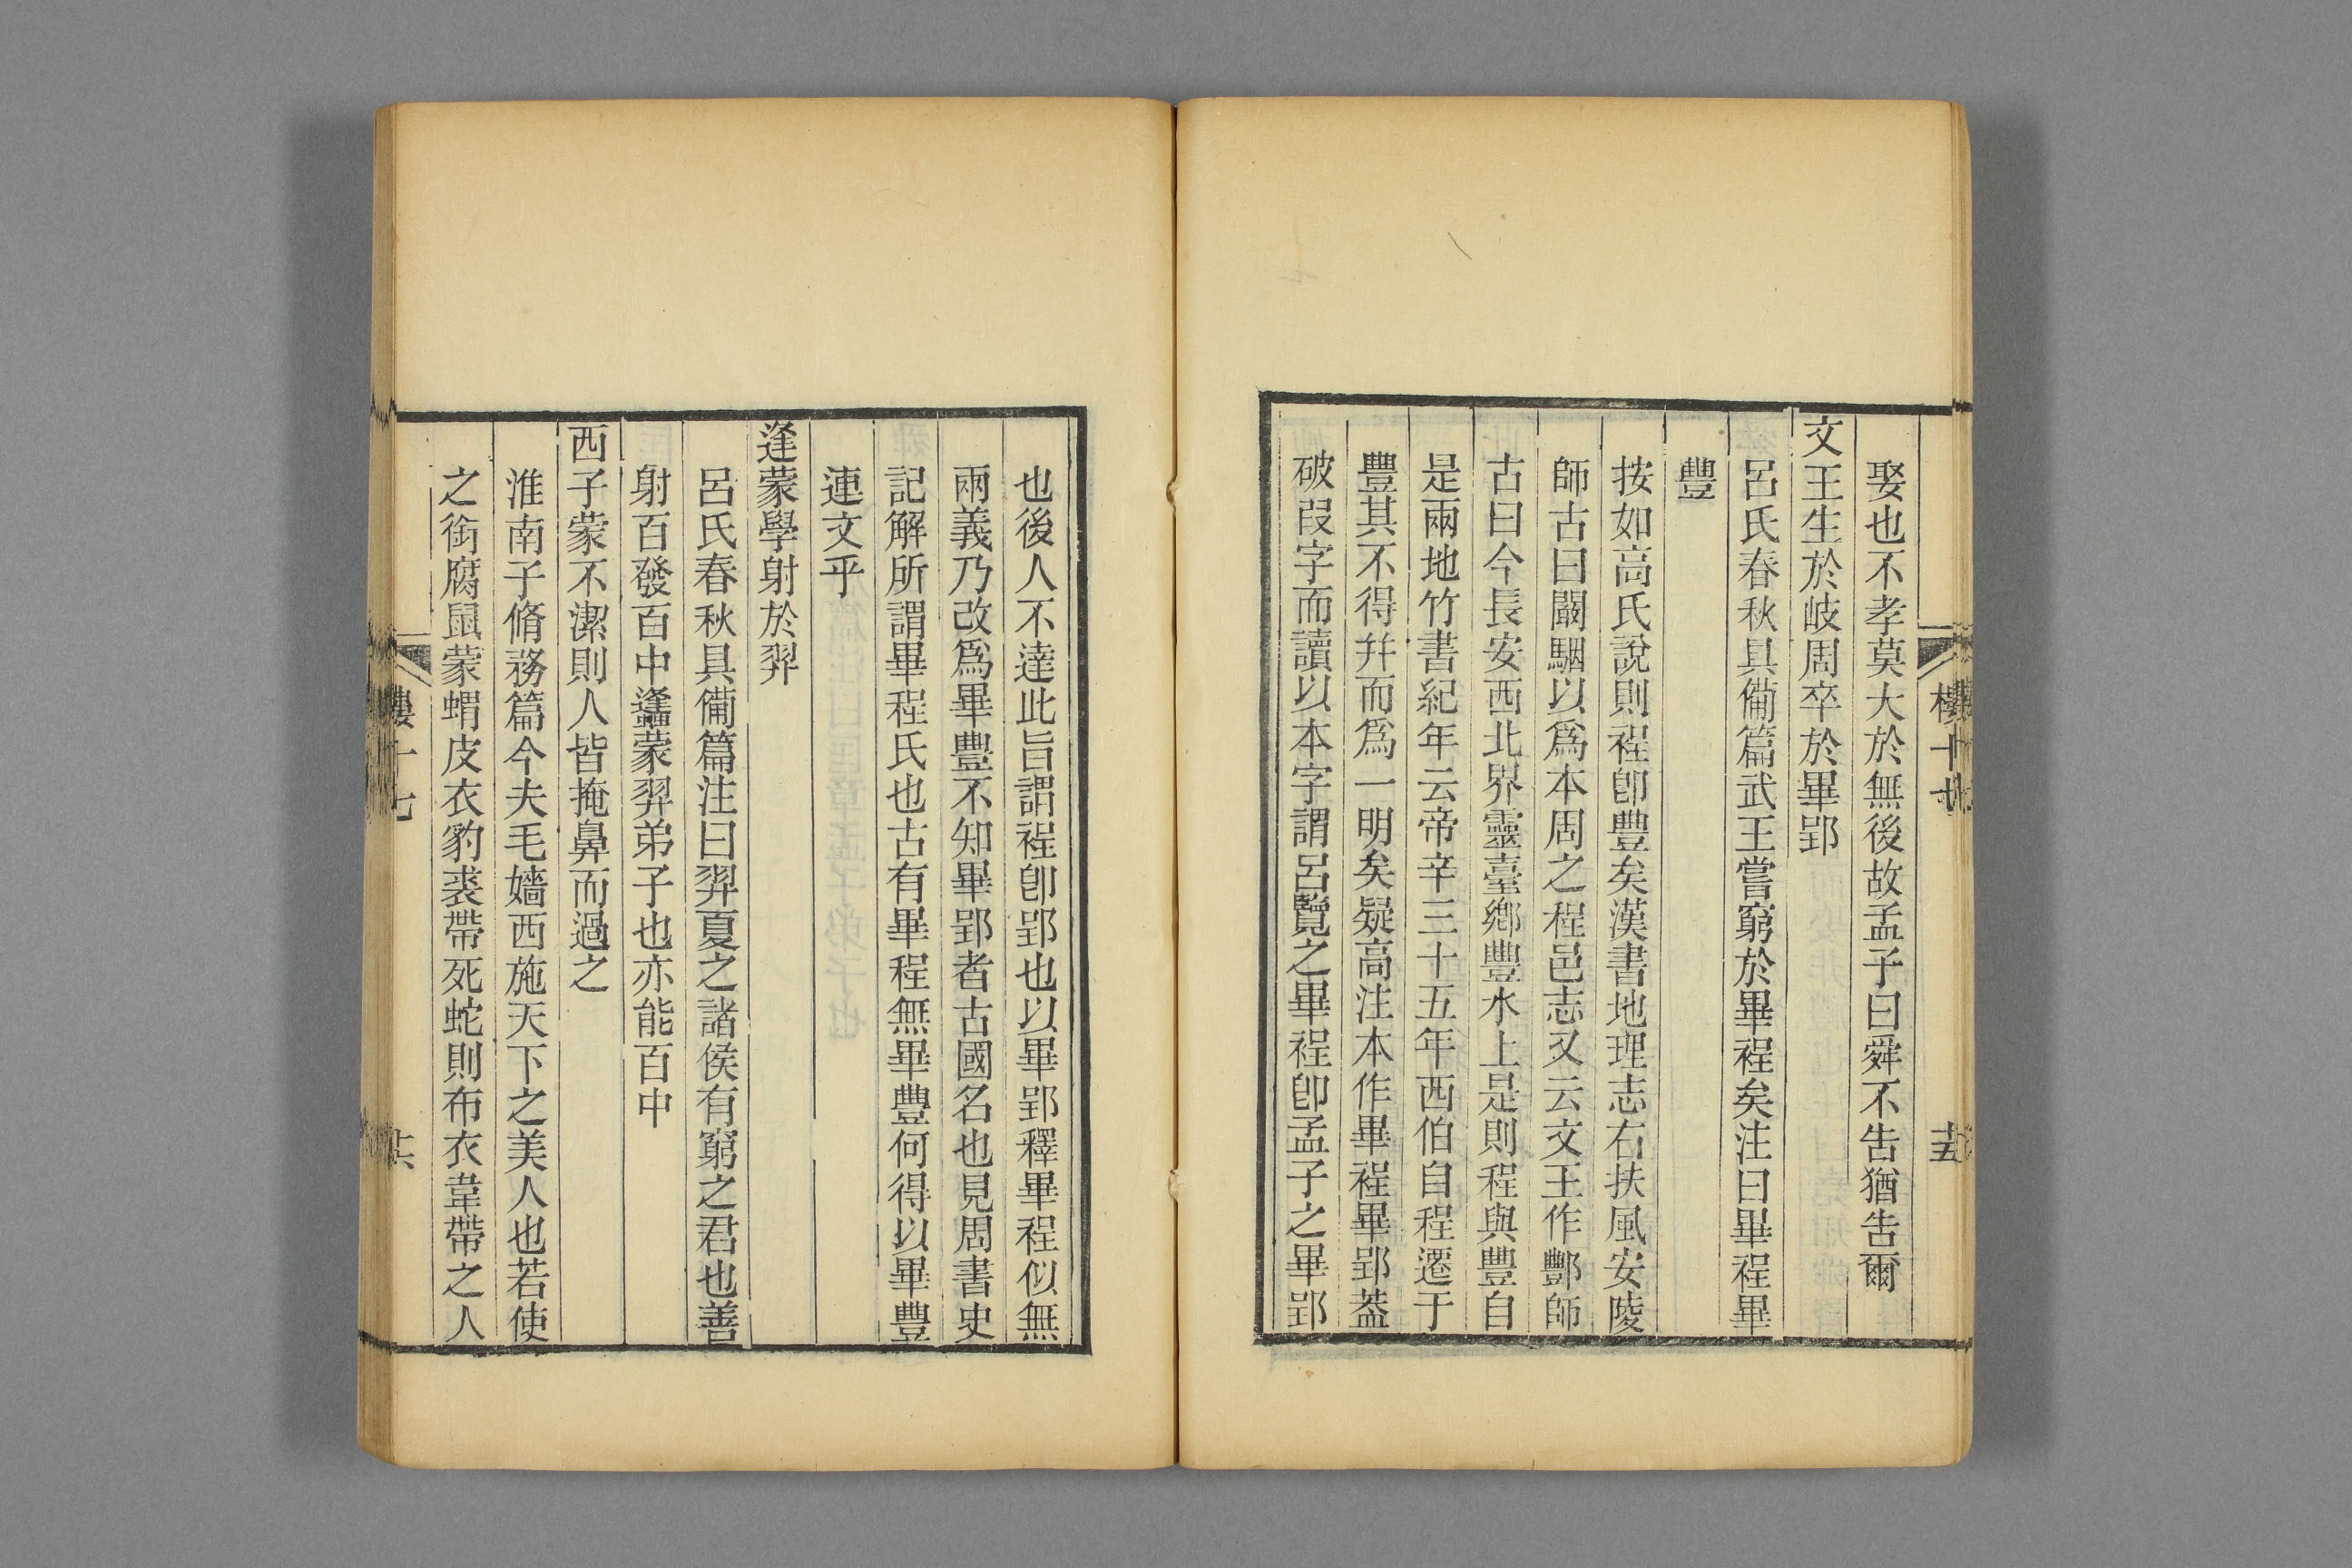 娶也不孝莫大於無後故孟子曰舜不告猶告爾
文王生於岐周卒於畢郢
呂氏春秋具備篇武王嘗窮於畢裎矣注曰畢裎畢
豐
按如高氏說則裎卽豐矣漢書地理志右扶風安陵
師古曰闞駰以爲本周之程邑志又云文王作酆師
古曰今長安西北界靈臺鄉豐水上是則程與豐自
是兩地竹書紀年云帝辛三十五年西伯自程遷于
豐其不得幷而爲一明矣疑高注本作畢裎畢郢葢
破叚字而讀以本字謂呂覽之畢裎卽孟子之畢郢
也後人不達此旨謂裎卽郢也以畢郢釋畢程似無
兩義乃改爲畢豐不知畢郢者古國名也見周書史
記解所謂畢程氏也古有畢程無畢豐何得以畢豐
連文乎
逢蒙學射於羿
呂氏春秋具備篇注曰羿夏之諸侯有窮之君也善
射百發百中蠭蒙羿弟子也亦能百中
西子蒙不潔則人皆掩鼻而過之
淮南子脩務篇今夫毛嬙西施天下之美人也若使
之銜腐鼠蒙蝟皮衣豹裘帶死蛇則布衣韋帶之人